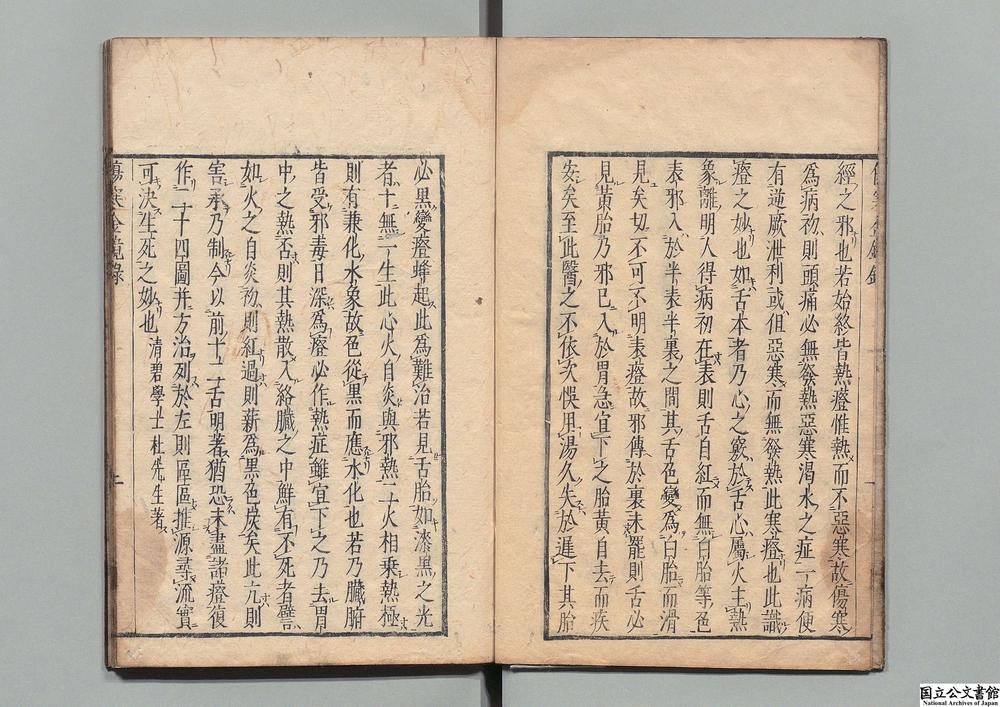 經之邪也若始終皆熱癋惟熱而不惡寒故傷寒
爲病初則頭痛必無發熱惡寒渴水之症一病便
有逆厥泄利或但惡寒而無發熱此寒癋也此識
癋之妙也如舌本者乃心之竅於舌心屬火主熱
象離明人得病初在表則舌自紅而無白胎等色
表邪入於半表半裏之間其舌色變爲白胎而滑
見矣切不可不明表癋故邪傳於裏未罷則舌必
見黃胎乃邪已入於胃急宜下之胎黃自去而疾
安矣至此醫之不依次悞用湯久失於遲下其胎
必黑變癋蜂起此爲難治若見舌胎如漆黑之光
者十無一生此心火自炎與邪熱二火相乘熱極
則有兼化水象故色從黑而應水化也若乃臟腑
皆受邪毒日深爲癋必作熱症雖宜下之乃去胃
中之熱否則其熱散入絡臟之中鮮有不死者譬
如火之自炎初則紅過則薪爲黑色炭矣此亢則
害承乃制今以前十二舌明著猶恐未盡諸癋復
作二十四圖并方治列於左則區區推源尋流實
可決生死之妙也 清碧學士 杜先生著
傷寒金鏡錄
一
国立公文書館
National Archives of Japan